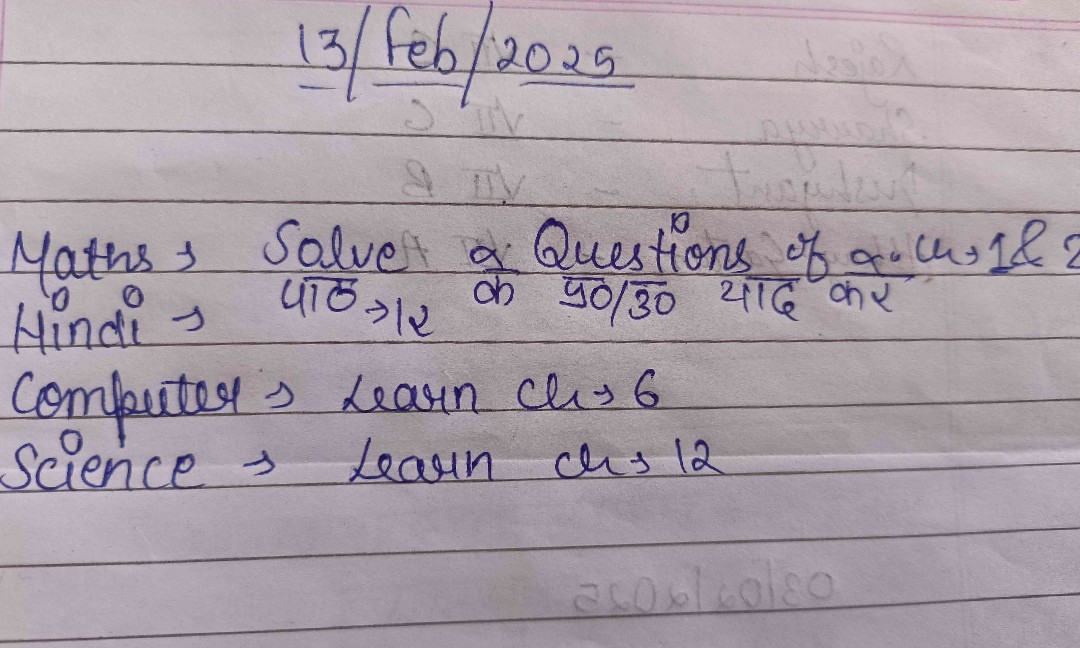 13/Feb/2025
Maths → Solve 2 Questions of 2. Ch → 1 & 2
Hindi → पाठ → 12 के प्र०/उ० याद कर
Computer → Learn Ch → 6
Science → Learn Ch → 12